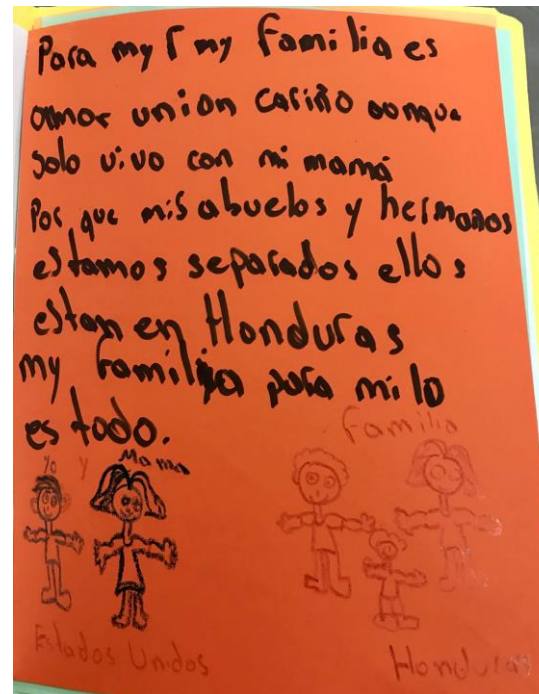 Para my r my familia es
amor union cariño aonque
solo vivo con mi mamá
Por que mis abuelos y hermanos
estamos separados ellos
estan en Honduras
my familia para mi lo
es todo.
Familia
yo y Mama
Estados Unidos
Honduras